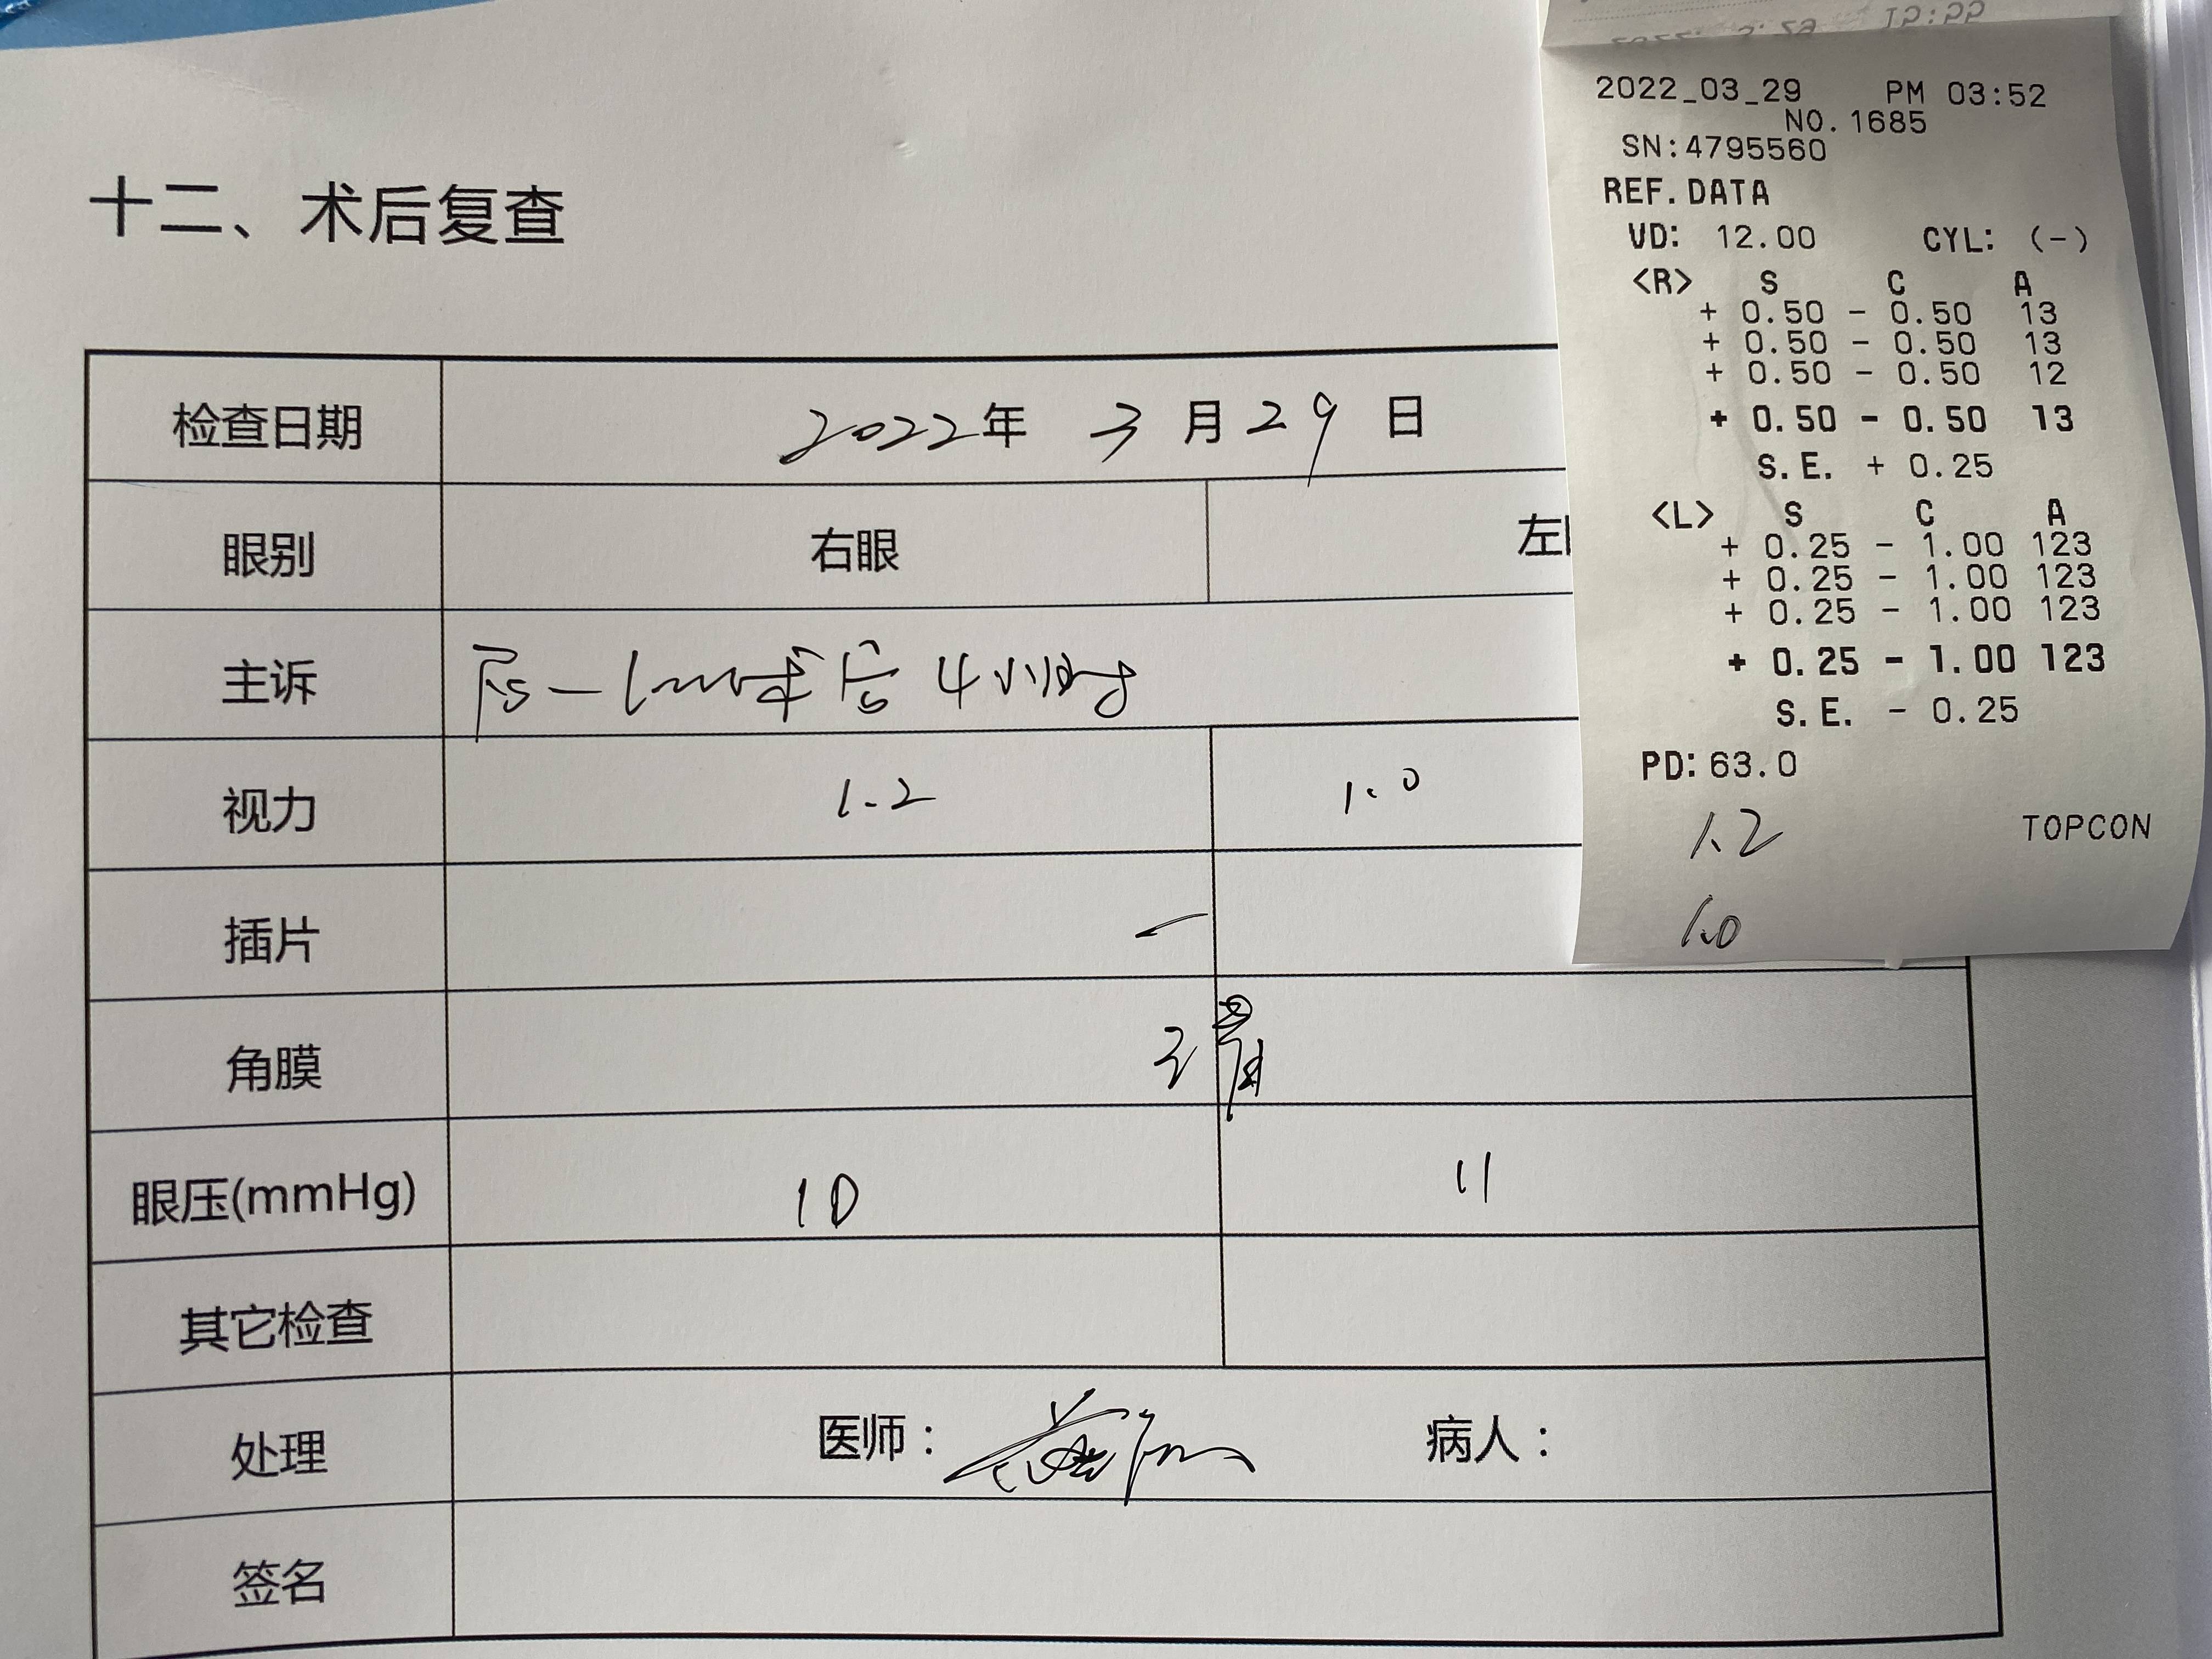 十二、术后复查
检查日期 2022年 3月29日
眼别 右眼 左
主诉 后4小时
视力 1.2 1.0
插片 一
角膜
眼压(mmHg) 10 11
其它检查
处理 医师： 病人：
签名
2022_03_29 PM 03:52
NO.1685
SN:4795560
REF.DATA
VD: 12.00 CYL: (-)
<R> S C A
+ 0.50 - 0.50 13
+ 0.50 - 0.50 13
+ 0.50 - 0.50 12
+ 0.50 - 0.50 13
S.E. + 0.25
<L> S C A
+ 0.25 - 1.00 123
+ 0.25 - 1.00 123
+ 0.25 - 1.00 123
+ 0.25 - 1.00 123
S.E. - 0.25
PD:63.0
1.2
TOPCON
1.0